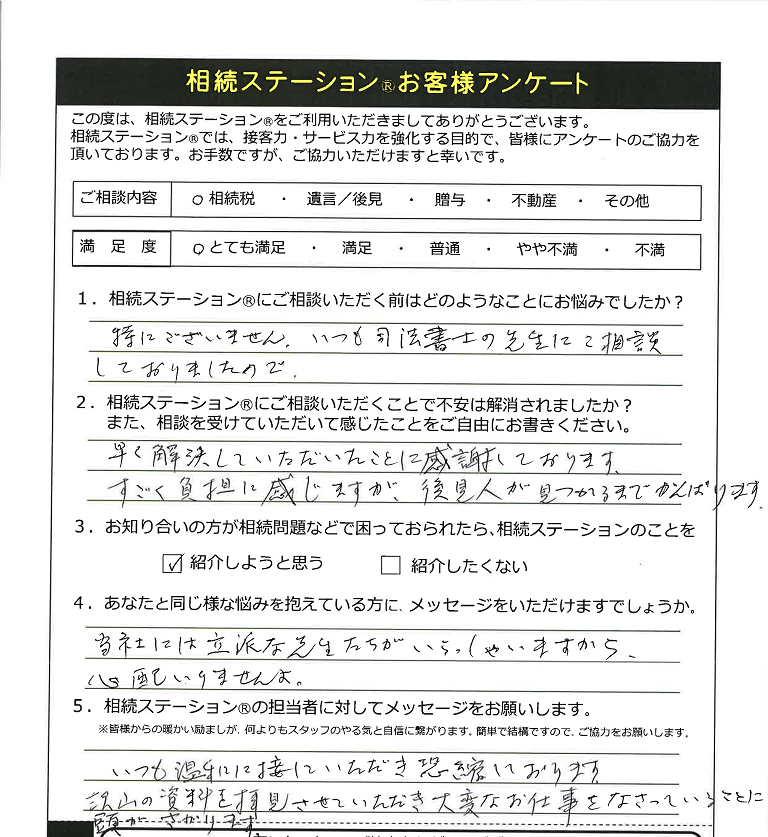 相続ステーション®お客様アンケート
この度は、相続ステーション®をご利用いただきましてありがとうございます。
相続ステーション®では、接客力・サービス力を強化する目的で、皆様にアンケートのご協力を
頂いております。お手数ですが、ご協力いただけますと幸いです。
ご相談内容 ○ 相続税 ・ 遺言／後見 ・ 贈与 ・ 不動産 ・ その他
満足度 ○ とても満足 ・ 満足 ・ 普通 ・ やや不満 ・ 不満
1．相続ステーション®にご相談いただく前はどのようなことにお悩みでしたか？
特にございません。いつも司法書士の先生にご相談
しておりましたので。
2．相続ステーション®にご相談いただくことで不安は解消されましたか？
また、相談を受けていただいて感じたことをご自由にお書きください。
早く解決していただいたことに感謝しております。
すごく負担に感じますが、後見人が見つかるまでがんばります。
3．お知り合いの方が相続問題などで困っておられたら、相続ステーションのことを
☑ 紹介しようと思う □ 紹介したくない
4．あなたと同じ様な悩みを抱えている方に、メッセージをいただけますでしょうか。
当社には立派な先生たちがいらっしゃいますから、
心配いりませんよ。
5．相続ステーション®の担当者に対してメッセージをお願いします。
※皆様からの暖かい励ましが、何よりもスタッフのやる気と自信に繋がります。簡単で結構ですので、ご協力をお願いします。
いつも温和に接していただき恐縮しております
沢山の資料を拝見させていただき大変なお仕事をなさっていることに
頭がさがります